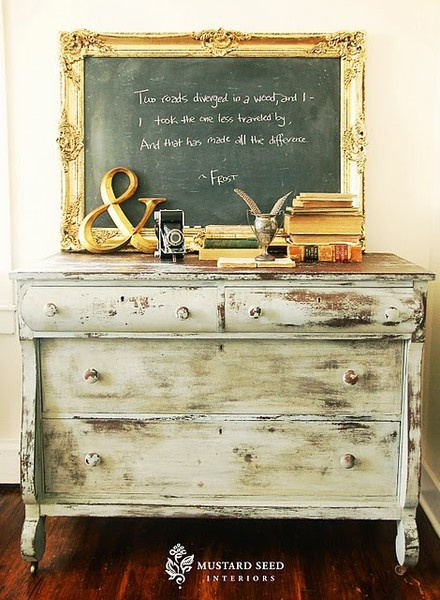 Two roads diverged in a wood, and I -
I took the one less traveled by,
And that has made all the difference.
~ FROST
&
MUSTARD SEED
INTERIORS